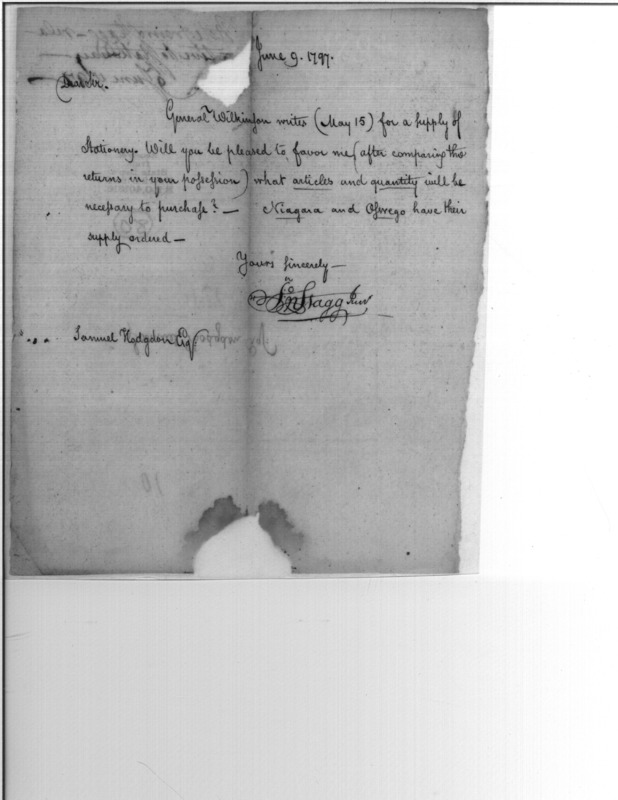 June 9. 1797.
Dear Sir.
General Wilkinson writes (May 15) for a supply of
Stationery. Will you be pleased to favor me (after comparing the
returns in your possession) what articles and quantity will be
necessary to purchase? — Niagara and Oswego have their
supply ordered —
Yours sincerely —
Jno Stagg Junr
Samuel Hodgdon Esqr
10